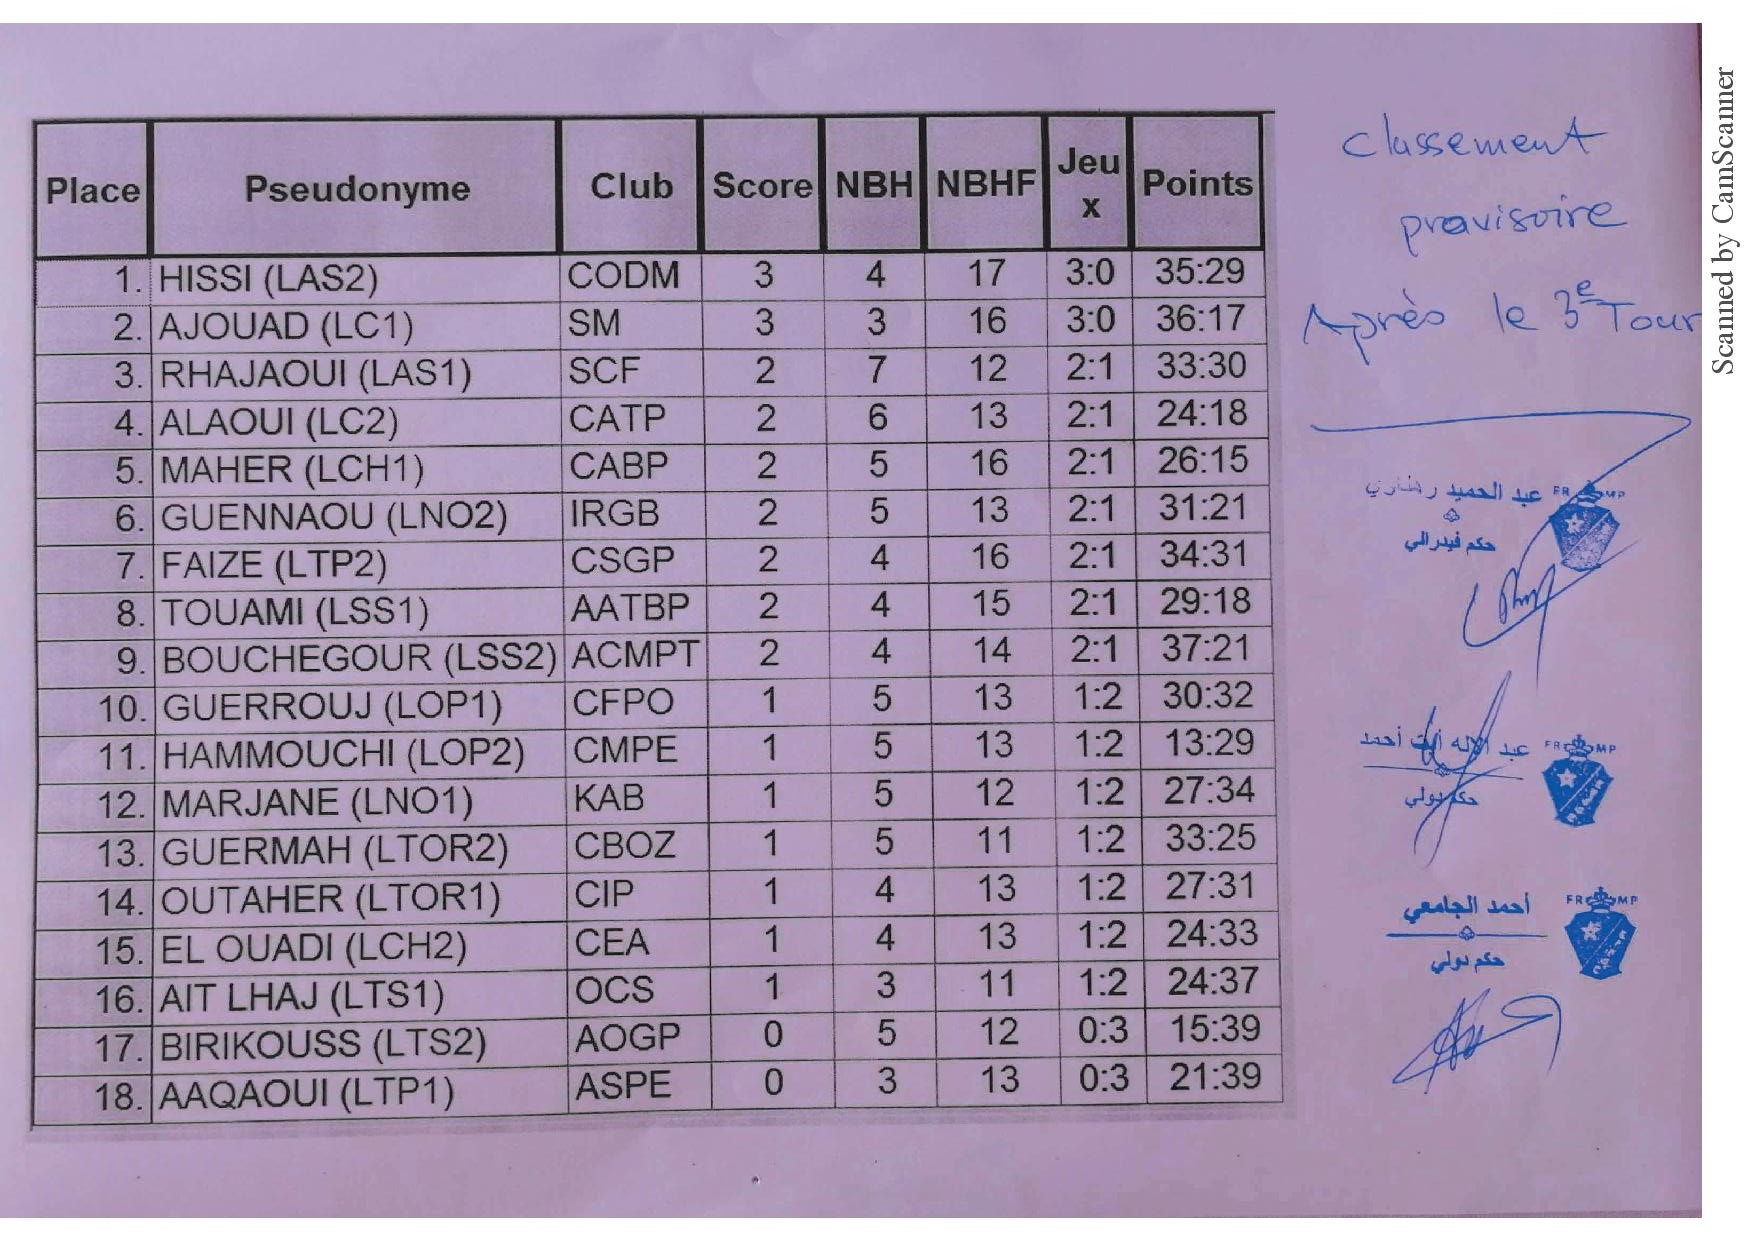 Place Pseudonyme Club Score NBH NBHF Jeu x Points
1. HISSI (LAS2) CODM 3 4 17 3:0 35:29
2. AJOUAD (LC1) SM 3 3 16 3:0 36:17
3. RHAJAOUI (LAS1) SCF 2 7 12 2:1 33:30
4. ALAOUI (LC2) CATP 2 6 13 2:1 24:18
5. MAHER (LCH1) CABP 2 5 16 2:1 26:15
6. GUENNAOU (LNO2) IRGB 2 5 13 2:1 31:21
7. FAIZE (LTP2) CSGP 2 4 16 2:1 34:31
8. TOUAMI (LSS1) AATBP 2 4 15 2:1 29:18
9. BOUCHEGOUR (LSS2) ACMPT 2 4 14 2:1 37:21
10. GUERROUJ (LOP1) CFPO 1 5 13 1:2 30:32
11. HAMMOUCHI (LOP2) CMPE 1 5 13 1:2 13:29
12. MARJANE (LNO1) KAB 1 5 12 1:2 27:34
13. GUERMAH (LTOR2) CBOZ 1 5 11 1:2 33:25
14. OUTAHER (LTOR1) CIP 1 4 13 1:2 27:31
15. EL OUADI (LCH2) CEA 1 4 13 1:2 24:33
16. AIT LHAJ (LTS1) OCS 1 3 11 1:2 24:37
17. BIRIKOUSS (LTS2) AOGP 0 5 12 0:3 15:39
18. AAQAOUI (LTP1) ASPE 0 3 13 0:3 21:39
Classement
provisoire
Après le 3e Tour
عبد الحميد
حكم فيدرالي
عبد الإله أيت أحمد
حكم دولي
FR MP
أحمد الجامعي
FR MP
حكم دولي
Scanned by CamScanner